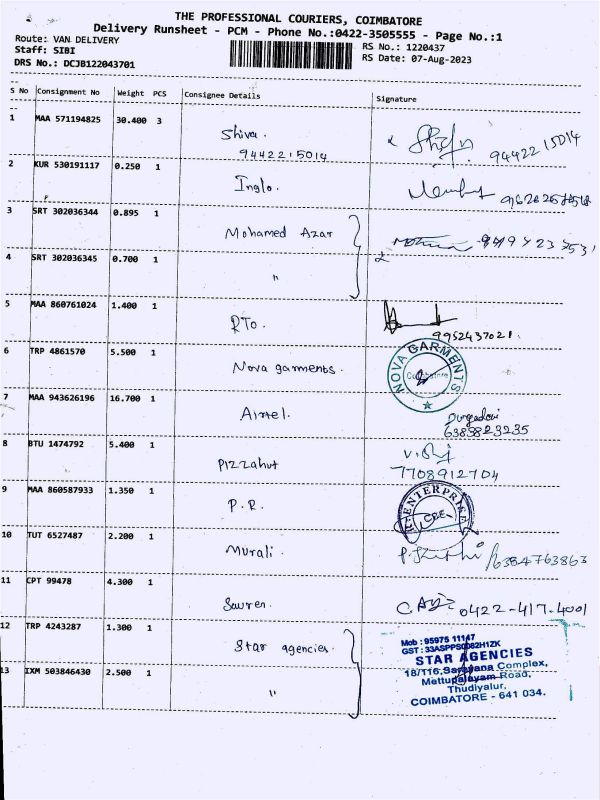 THE PROFESSIONAL COURIERS, COIMBATORE
Delivery Runsheet - PCM - Phone No.:0422-3505555 - Page No.:1
Route: VAN DELIVERY
Staff: SIBI
RS No.: 1220437
DRS No.: DCJB122043701
RS Date: 07-Aug-2023
S No Consignment No Weight PCS Consignee Details Signature
1 MAA 571194825 30.400 3 Shiva.
9442215014 9442215014
2 KUR 530191117 0.250 1 Inglo.
3 SRT 302036344 0.895 1 Mohamed Azar
4 SRT 302036345 0.700 1 "
5 MAA 860761024 1.400 1 RTO.
9952437021
6 TRP 4861570 5.500 1 Nova garments. NOVA GARMENTS
Coimbatore
7 MAA 943626196 16.700 1 Airtel. Durgadevi
6383823235
8 BTU 1474792 5.400 1 Pizzahut
7708912704
9 MAA 860587933 1.350 1 P.R. ENTERPRISE
CBE
10 TUT 6527487 2.200 1 Murali. 6384763863
11 CPT 99478 4.300 1 0422-417-4001
12 TRP 4243287 1.300 1 Star agencies.
Mob : 95975 11147
GST : 33ASPPS0082H1ZK
STAR AGENCIES
18/116, Saravana Complex,
Mettupalayam Road,
Thudiyalur,
COIMBATORE - 641 034.
13 IXM 503846430 2.500 1 "